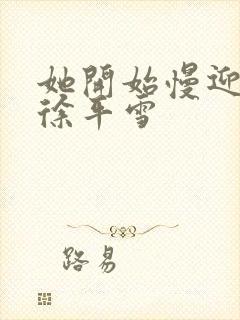 她開始慢迎
徐平雪
路易